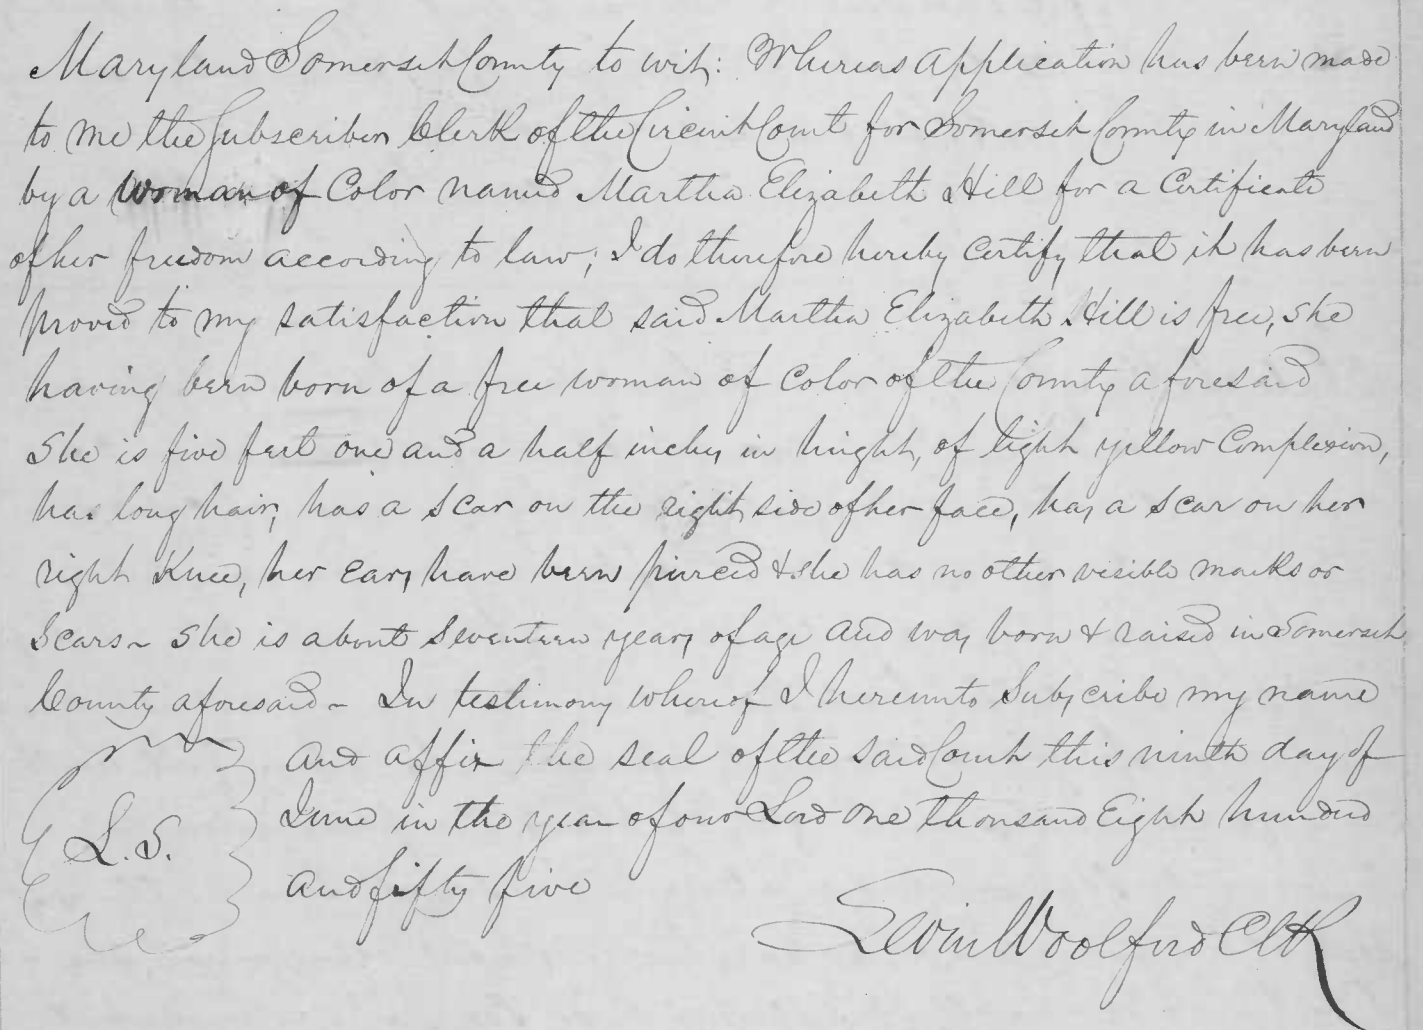 Maryland Somerset County to wit: Whereas application has been made
to me the Subscriber Clerk of the Circuit Court for Somerset County in Maryland
by a woman of Color named Martha Elizabeth Hill for a Certificate
of her freedom according to law; I do therefore hereby Certify that it has been
proved to my satisfaction that said Martha Elizabeth Hill is free, she
having been born of a free woman of Color of the County aforesaid
She is five feet one and a half inches in hight, of light yellow Complexion,
has long hair, has a scar on the right side of her face, has a scar on her
right Knee, her ears have been pierced & she has no other visible marks or
Scars - She is about Seventeen years of age and was born & raised in Somerset
County aforesaid - In testimony whereof I hereunto Subscribe my name
and affix the seal of the said Court this ninth day of
June in the year of our Lord One thousand Eight hundred
and fifty five
L. S.
Levin Woolford Clk